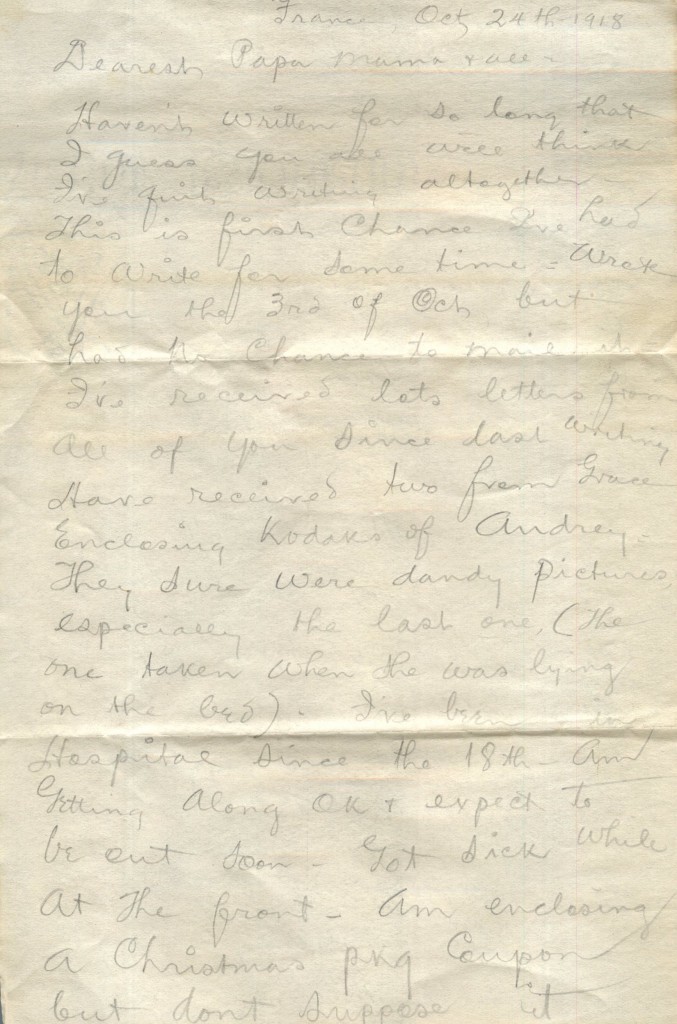 France, Oct 24th-1918
Dearest Papa Mama & all-
Haven't written for so long that
I guess you all will think
I've quit writing altogether-
This is first Chance I've had
to write for some time = Wrote
you the 3rd of Oct but
had no Chance to mail it-
I've received lots letters from
all of you since last writing
Have received two from Grace
Enclosing Kodaks of Audrey-
They sure were dandy Pictures,
especially the last one, (The
one taken when she was lying
on the bed). I've been in
Hospital since the 18th- Am
Getting Along OK & expect to
be out soon- Got sick while
At the front- Am enclosing
a Christmas pkg Coupon
but dont suppose it